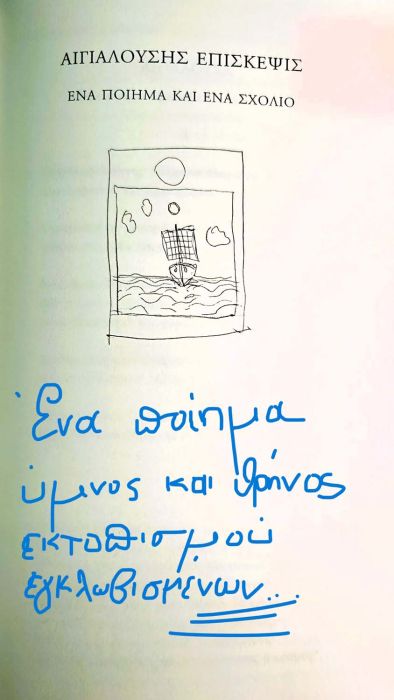 ΑΙΓΙΑΛΟΥΣΗΣ ΕΠΙΣΚΕΨΙΣ
ΕΝΑ ΠΟΙΗΜΑ ΚΑΙ ΕΝΑ ΣΧΟΛΙΟ
Ἕνα ποίημα
ὕμνος και θρήνος
εκτοπισμού
εγκλωβισμένων...